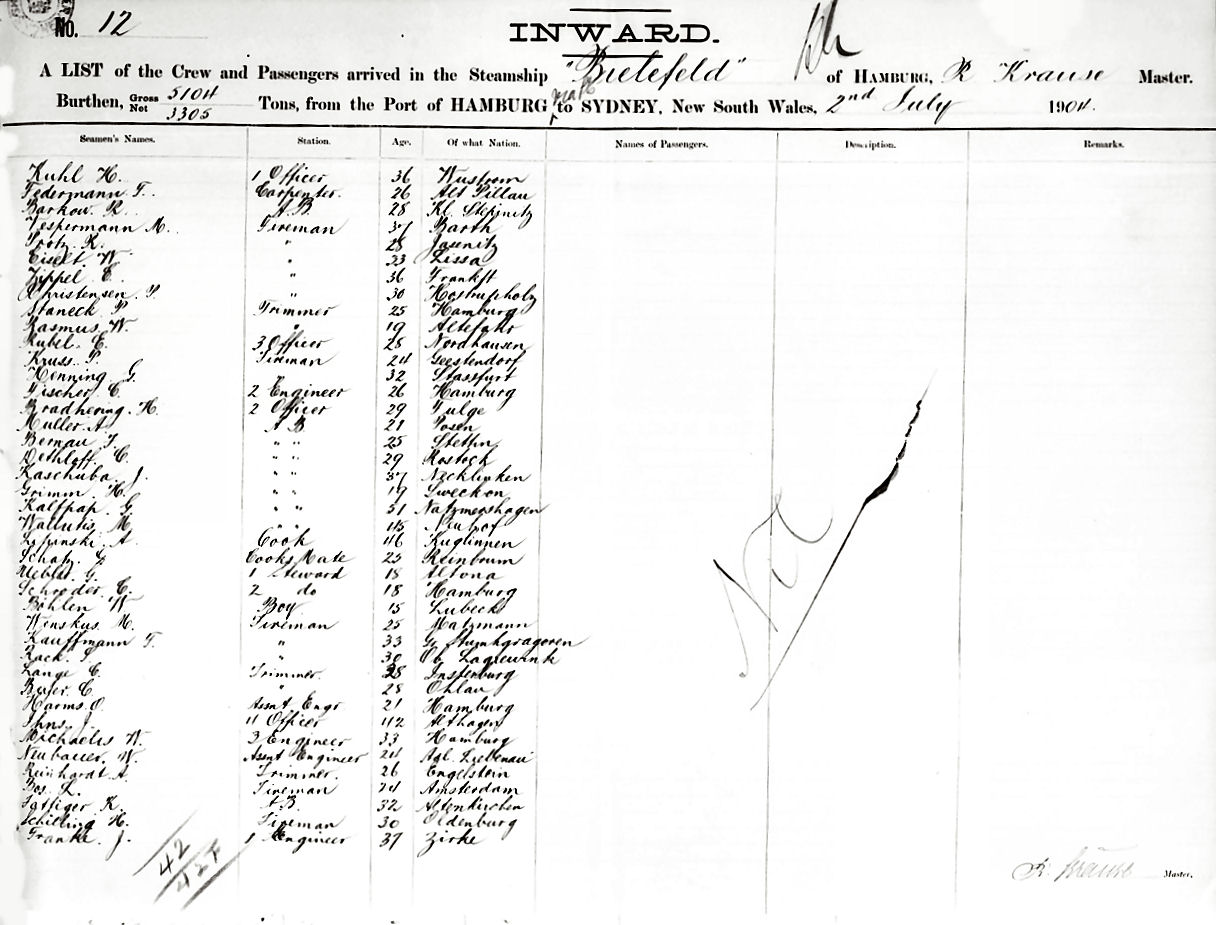 No. 12
INWARD.
A LIST of the Crew and Passengers arrived in the Steamship "Bielefeld" of HAMBURG, R Krause Master.
Burthen, Gross 5104 Net 3305 Tons, from the Port of HAMBURG to SYDNEY, New South Wales, 2nd July 1904.
Seamen's Names. Station. Age. Of what Nation. Names of Passengers. Description. Remarks.
Kuhl H. 1 Officer 36 Wustrow
Federmann F. Carpenter. 26 Alt Pillau
Barkow. R. A.B. 28 Kl. Stepenitz
Vespermann M. Fireman 37 Barth
Protz. R. " 28 Jasenitz
Eiselt W. " 33 Lissa
Zippel E. " 36 Frankft
Christensen. P. " 30 Hostrupholz
Staneck P Trimmer 25 Hamburg
Rasmus W. " 19 Altefahr
Rubel. E. 3 Officer 28 Nordhausen
Kruss. P. Fireman 24 Geestendorf
Henning G. 32 Stassfurt
Fischer C. 2 Engineer 26 Hamburg
Bradhering. H. 2 Officer 29 Pulge
Muller A. A B. 21 Posen
Bernau F. " " 25 Stettin
Dethloff. C. " " 29 Rostock
Kaschuba J. " " 37
Grimm. H. " " 19
Kalfpap. G. " " 51 Natzmershagen
Wallutis M. " " 45 Neuhof
Lipinski. A. Cook 46 Kuglinnen
Schatz. G Cooks Mate 25
G. 1 Steward 18 Altona
Schroder. C. 2 do 18 Hamburg
Bohlen W. Boy 15 Lubeck
Wenskus. M. Fireman 25 Matzmann
Kauffmann F. " 33
Rack. P. " 30
Lange C. Trimmer. 28 Instenburg
C. " 28 Ohlau
Harms. O. Assnt Engr 21 Hamburg
Ihns. J. 4 Officer 42 Althagen
Michaelis W. 3 Engineer 33 Hamburg
Neubauer. W. Assnt Engineer 24 Adl. Liebenau
Reinhardt A. Trimmer. 26 Engelstein
Bos. L. Fireman 24 Amsterdam
K. A.B. 32 Altenkirchen
Schilling H. Fireman 30 Oldenburg
Franke. J. 1 Engineer 37 Zirke
42
R. Krause Master.